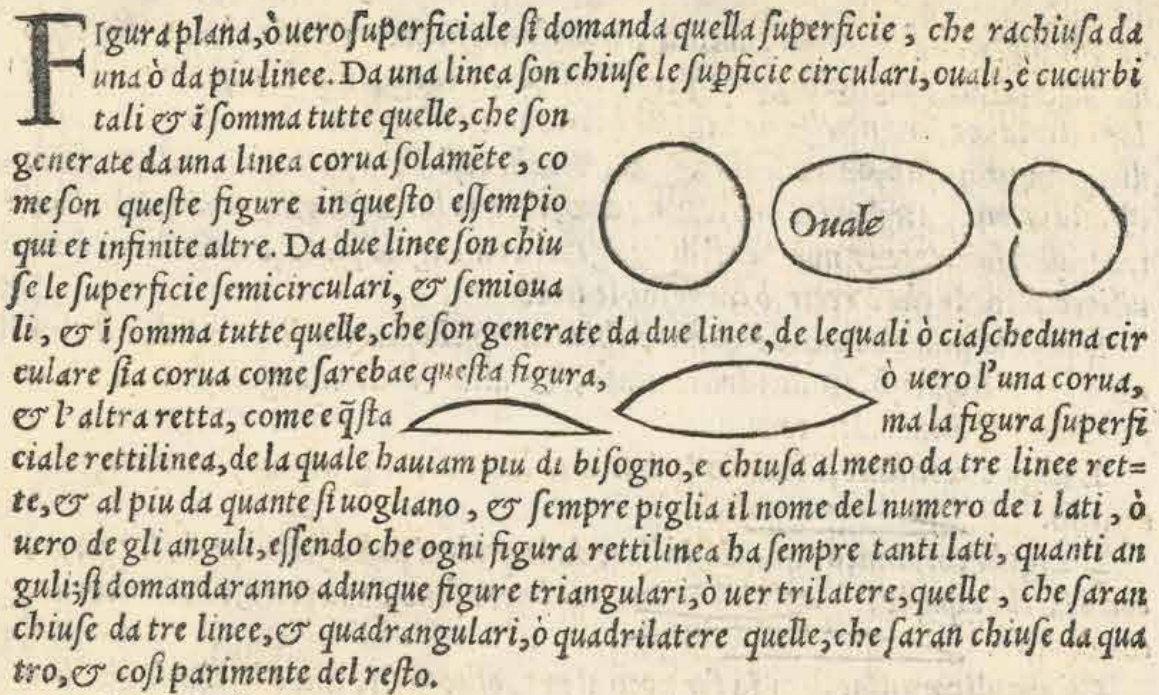 FIgura plana, ò uero ſuperficiale ſi domanda quella ſuperficie, che rachiuſa da
una ò da piu linee. Da una linea ſon chiuſe le ſuꝑficie circulari, ouali, è cucurbi
tali & ĩ ſomma tutte quelle, che ſon
generate da una linea corua ſolamẽte, co
me ſon queſte figure in queſto eſſempio
qui et infinite altre. Da due linee ſon chiu
ſe le ſuperficie ſemicirculari, & ſemioua
Ouale
li, & ĩ ſomma tutte quelle, che ſon generate da due linee, de lequali ò ciaſcheduna cir
culare ſia corua come ſarebae queſta figura, ò uero l'una corua,
& l'altra retta, come e q̃ſta ma la figura ſuperfi
ciale rettilinea, de la quale hauiam piu di biſogno, e chiuſa al meno da tre linee ret=
te, & al piu da quante ſi uogliano, & ſempre piglia il nome del numero de i lati, ò
uero de gli anguli, eſſendo che ogni figura rettilinea ha ſempre tanti lati, quanti an
guli; ſi domandaranno adunque figure triangulari, ò uer trilatere, quelle, che ſaran
chiuſe da tre linee, & quadrangulari, ò quadrilatere quelle, che ſaran chiuſe da qua
tro, & coſi parimente del reſto.